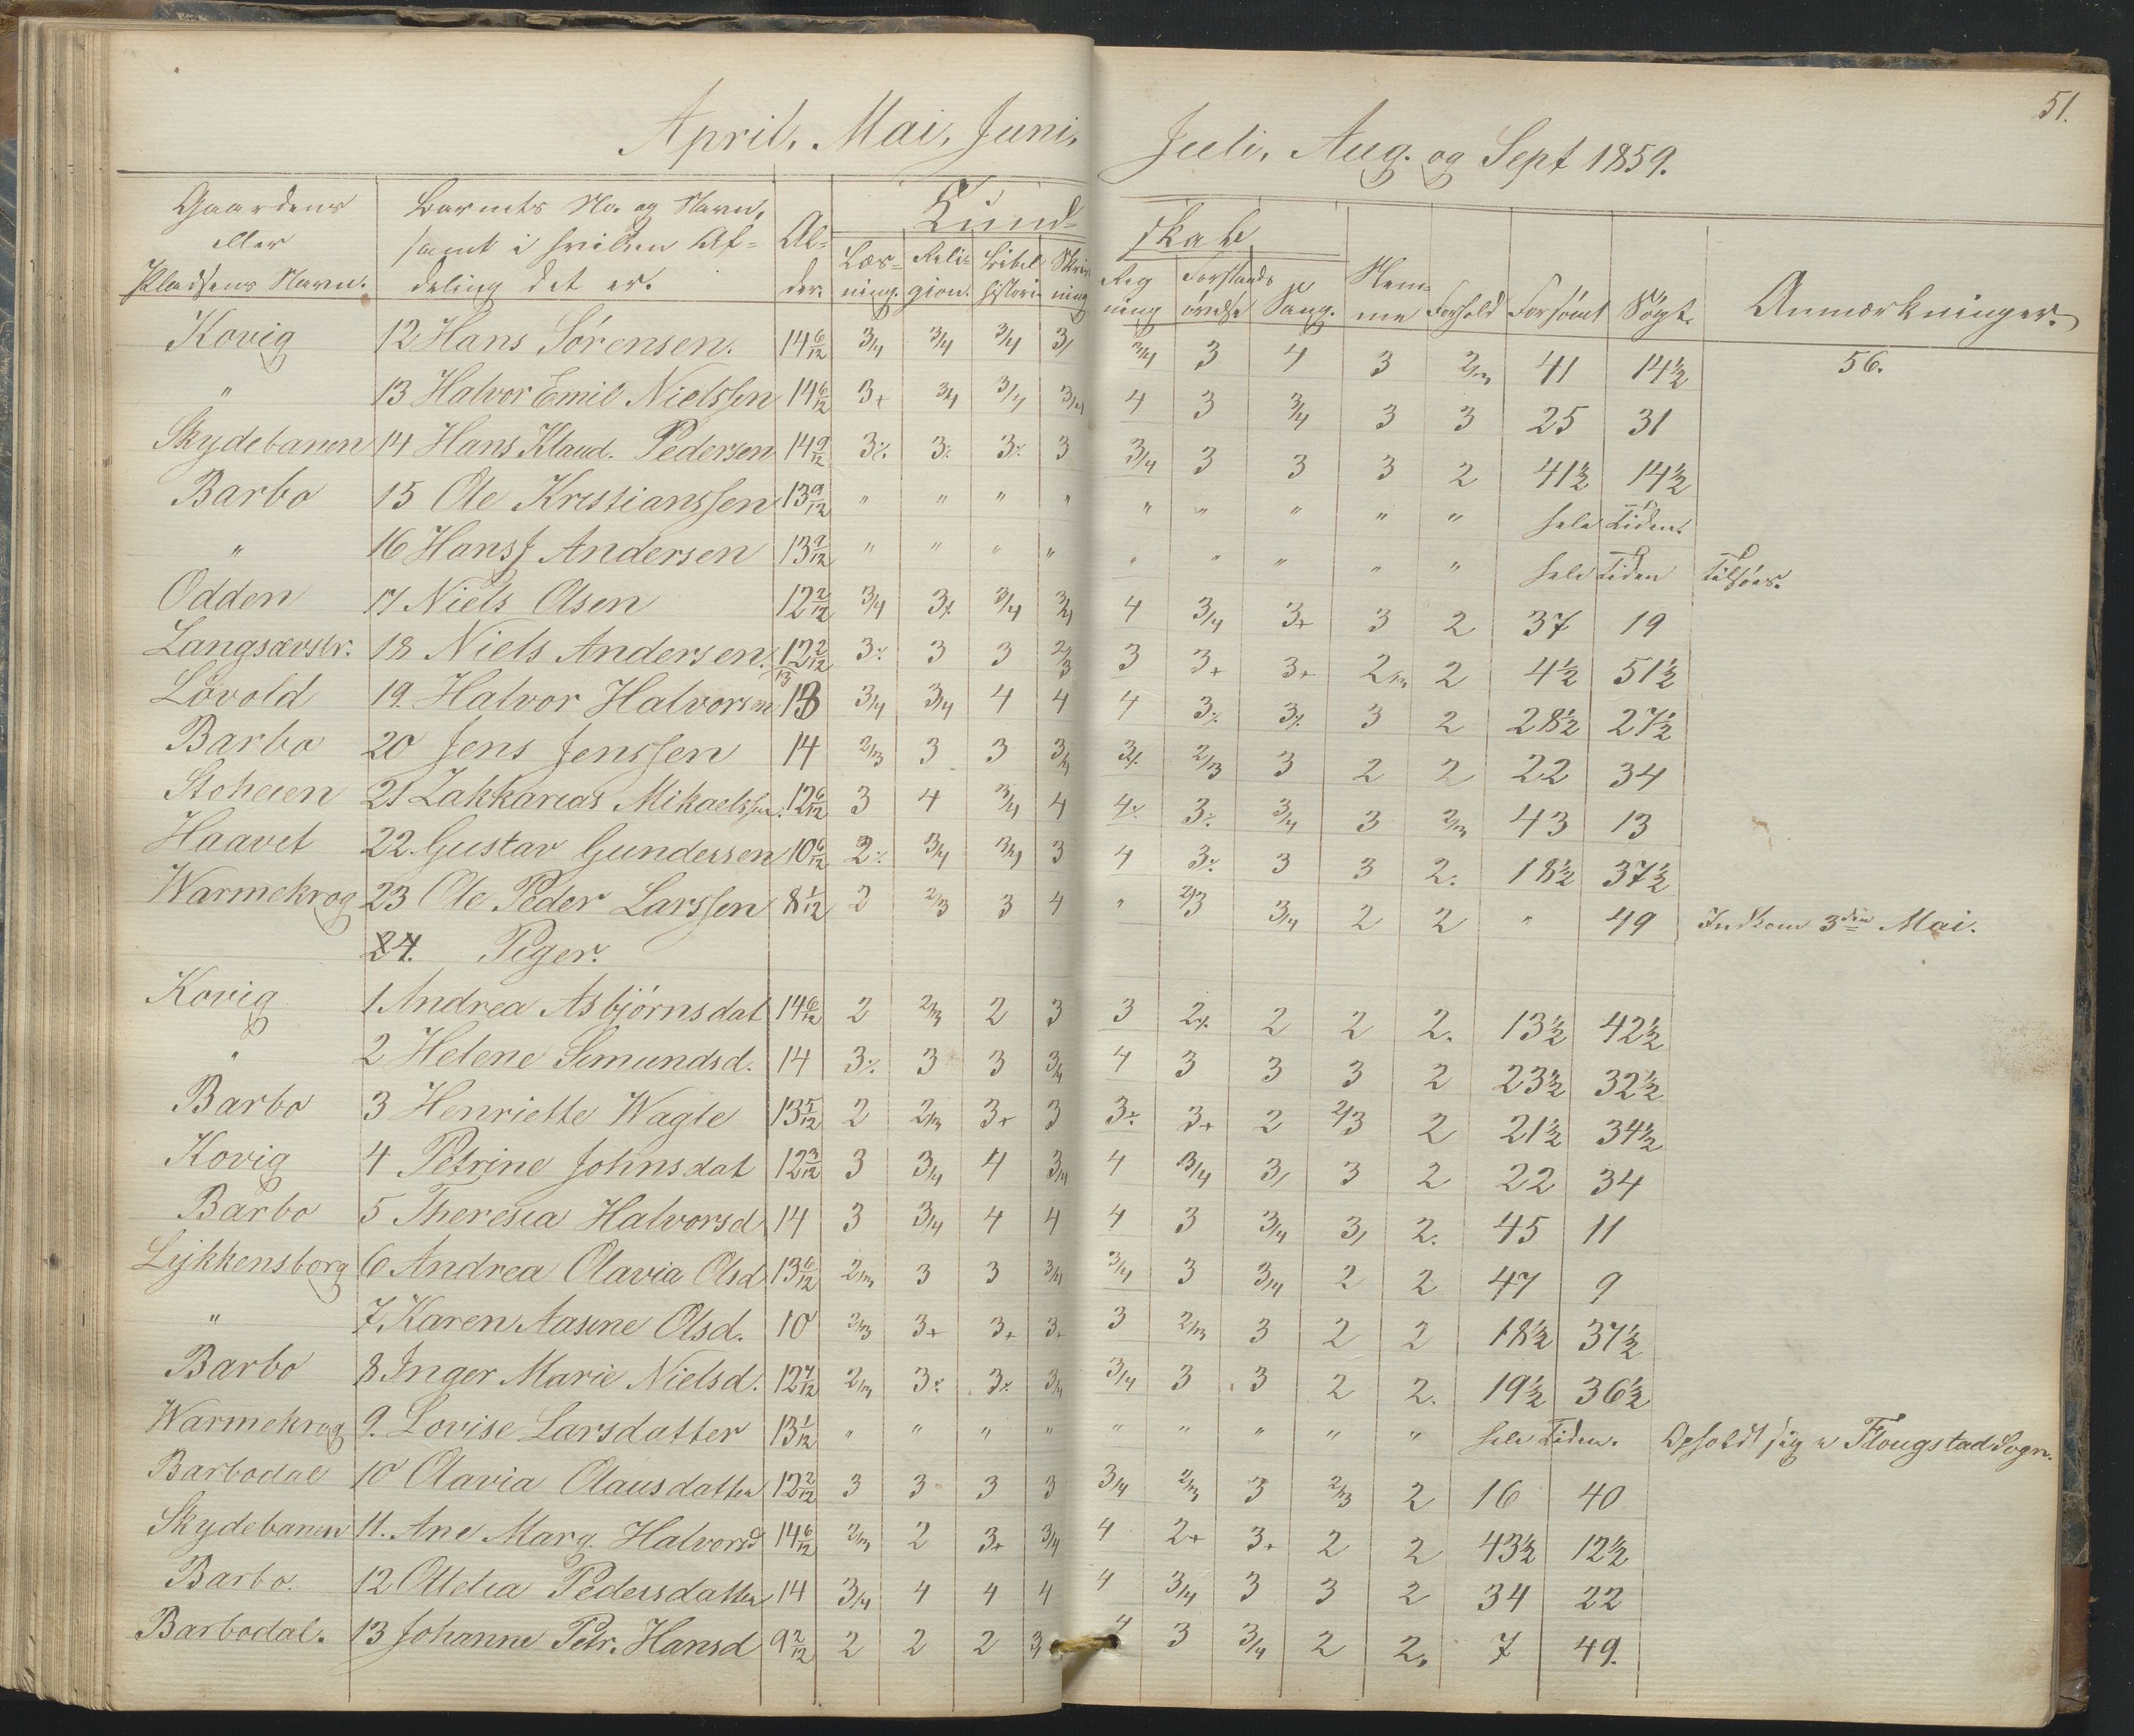 51.
April, Mai, Juni, Juli, Aug. og Sept 1859.
Gaardens eller Pladsens Navn. | Barnets No. og Navn, samt i hvilken Afdeling det er. | Alder. | Kundskab | Læsning. | Religion. | Bibelhistorie | Skrivning | Regning | Forstandsøvelse | Sang. | Nemme | Forhold | Forsömt | Sögt. | Anmærkninger.
Kovig 12 Hans Sórensen. 14 6/12 3/4 3/4 3/4 3/ 3/4 3 4 3 2/3 41 14½ 56.
" 13 Halvor Emil Nielssen 14 6/12 3+ 3/4 3/4 3/4 4 3 3/4 3 3 25 31
Skydebanen 14 Hans Klaud. Pedersen 14 9/12 3÷ 3÷ 3÷ 3 3/4 3 3 3 2 41½ 14½
Barbo 15 Ole Kristianssen 13 9/12 " " " " " " " " " hele Tiden.
" 16 Hans J Andersen 13 9/12 " " " " " " " " " hele Tiden Tilsöes.
Odden 17 Niels Olsen 12 2/12 3/4 3÷ 3/4 3/4 4 3/4 3+ 3 2 37 19
Langsævstr. 18 Niels Andersen. 12 2/12 3÷ 3 3 2/3 3 3+ 3+ 2/3 2 4½ 51½
Lövold 19. Halvor Halvorsen 13 3/4 3/4 4 4 4 3÷ 3÷ 3 2 28½ 27½
Barbo 20 Jens Jenssen 14 2/3 3 3 3/4 3÷ 2/3 3 2 2 22 34
Stoheien 21 Zakkarias Mikaelssen. 12 6/12 3 4 3/4 4 4÷ 3÷ 3/4 3 2/3 43 13
Haavet 22. Gustav Gundersen 10 6/12 2÷ 3/4 3/4 3 4 3÷ 3 3 2. 18½ 37½
Warmekrog 23 Ole Peder Larssen 8 1/12 2 2/3 3 4 " 2/3 3/4 2 2 " 49 Indkom 3die Mai.
24. Piger.
Kovig 1 Andrea Asbjörnsdat 14 6/12 2 2/3 2 3 3 2÷ 2 2 2. 13½ 42½
" 2 Helene Simundsd. 14 3÷ 3 3 3/4 4 3 3 3 2 23½ 32½
Barbo 3 Henriette Wagle 13 5/12 2 2/3 3+ 3 3÷ 3+ 2 2/3 2 21½ 34½
Kovig 4 Petrine Johnsdat 12 3/12 3 3/4 4 3/4 4 3/4 3/ 3 2 22 34
Barbo 5 Theresia Halvorsd 14 3 3/4 4 4 4 3 3/4 3/ 2. 45 11
Lykkensborg 6 Andrea Olavia Olsd 13 6/12 2/3 3 3 3/4 3/4 3 3/4 2 2 47 9
" 7. Karen Aasine Olsd. 10 2/3 3+ 3+ 3+ 3 2/3 3 2 2 18½ 37½
Barbo 8 Inger Marie Nielsd. 12 7/12 2/3 3÷ 3÷ 3/4 3/4 3 3 2 2. 19½ 36½
Warmekrog 9. Lovise Larsdatter 13 1/12 " " " " " " " " " hele Tiden. Opholdt sig i Flougstad Sogn.
Barbodal 10 Olavia Olausdatter 12 2/12 3 3 3 3 3/4 2/3 3 2/3 2 16 40
Skydebanen 11. Ane Marg. Halvorsd 14 6/12 2/3 2 3+ 3/4 4 2+ 3+ 2 2 43½ 12½
Barbo. 12 Ottelia Pedersdatter 14 3/4 4 4 4 4 3/4 3 3 2 34 22
Barbodal. 13 Johanne Petr. Hansd 9 2/12 2 2 2 3 4 3 3/4 2 2. 7 49.